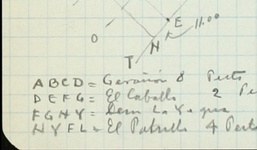 E
11.00
O
N
T
ABCD = Geranión 8 Perts
DEFG = El Caballo 2 Pe
FGNY = Dem La Yegua
NYFL = El Potrillo 4 Perts